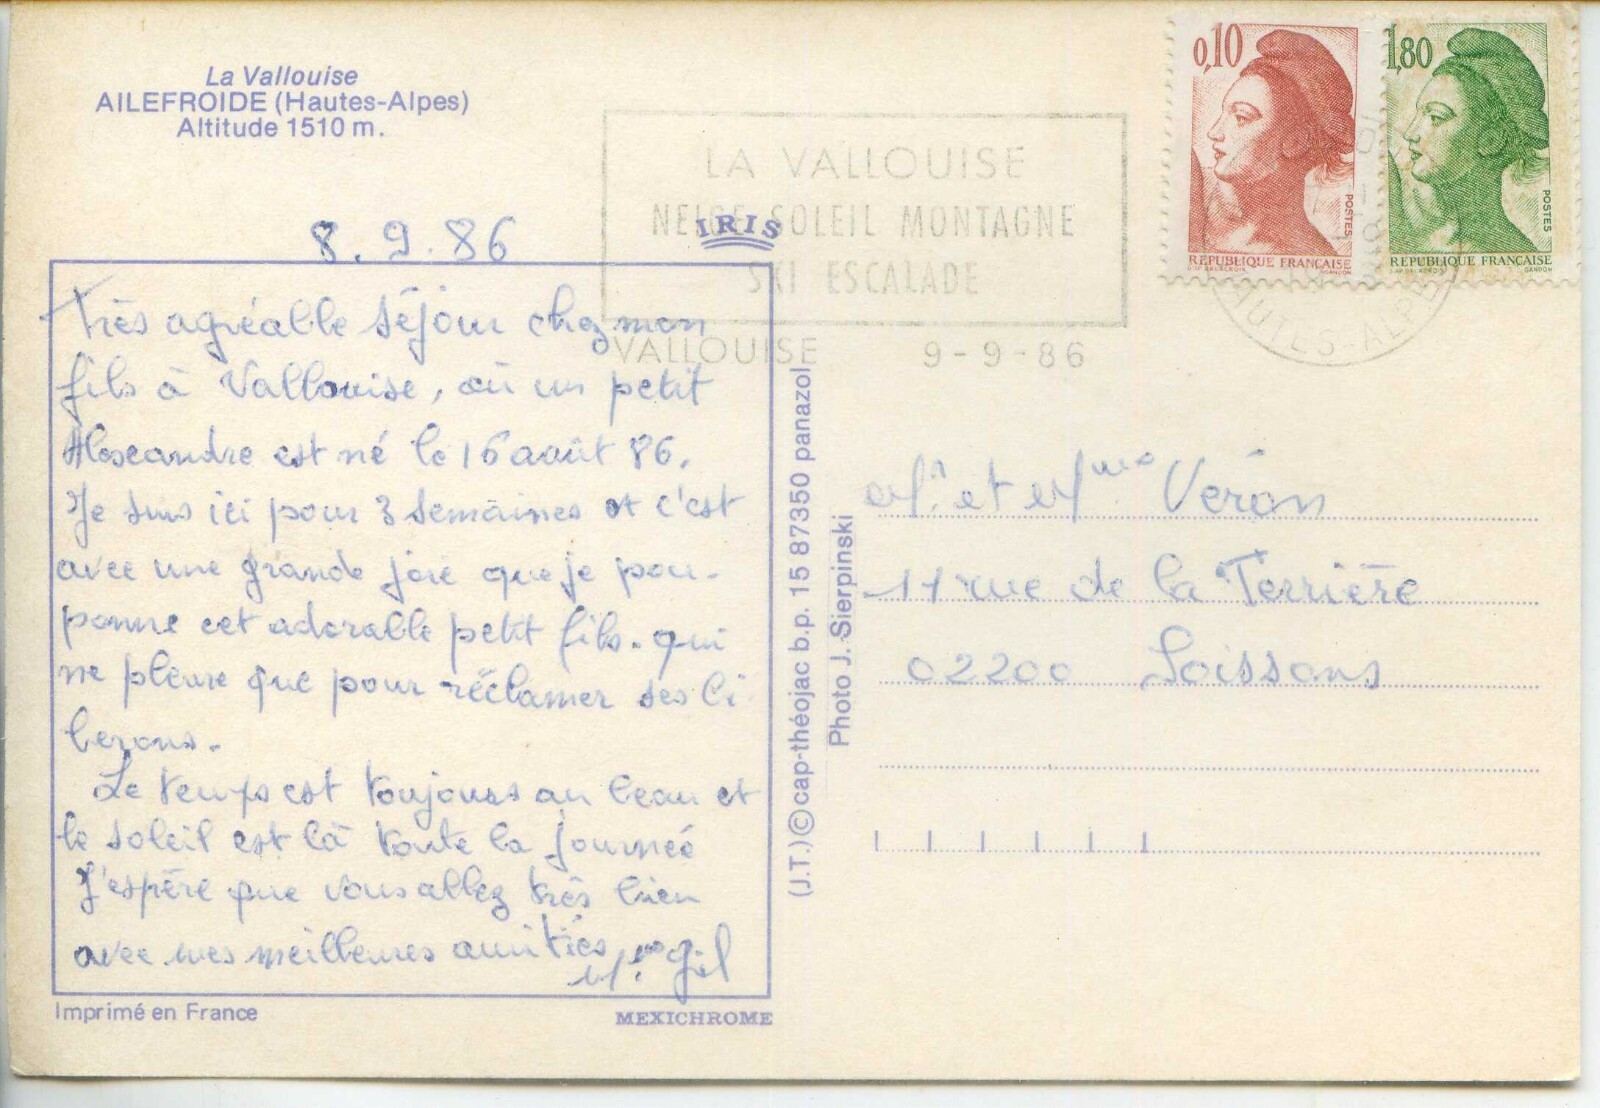 La Vallouise
AILEFROIDE (Hautes-Alpes)
Altitude 1510 m.
8.9.86
Très agréable séjour chez mon
fils à Vallouise, où un petit
Alexandre est né le 16 août 86.
Je suis ici pour 3 semaines et c'est
avec une grande joie que je pou-
ponne cet adorable petit fils. qui
ne pleure que pour réclamer ses bi
berons.
Le temps est toujours au beau et
le soleil est là toute la journeé
J'espère que vous allez très bien
avec mes meilleures amitiés
Mme Gil
Imprimé en France
MEXICHROME
IRIS
LA VALLOUISE
NEIGE SOLEIL MONTAGNE
SKI ESCALADE
VALLOUISE 9-9-86
(J.T.) © cap-théojac b.p. 15 87350 panazol
Photo J. Sierpinski
0,10
POSTES
REPUBLIQUE FRANÇAISE
GANDON
1,80
POSTES
REPUBLIQUE FRANÇAISE
GANDON
HAUTES-ALPES
Mr et Mme Véron
11 rue de la Terrière
02200 Soissons